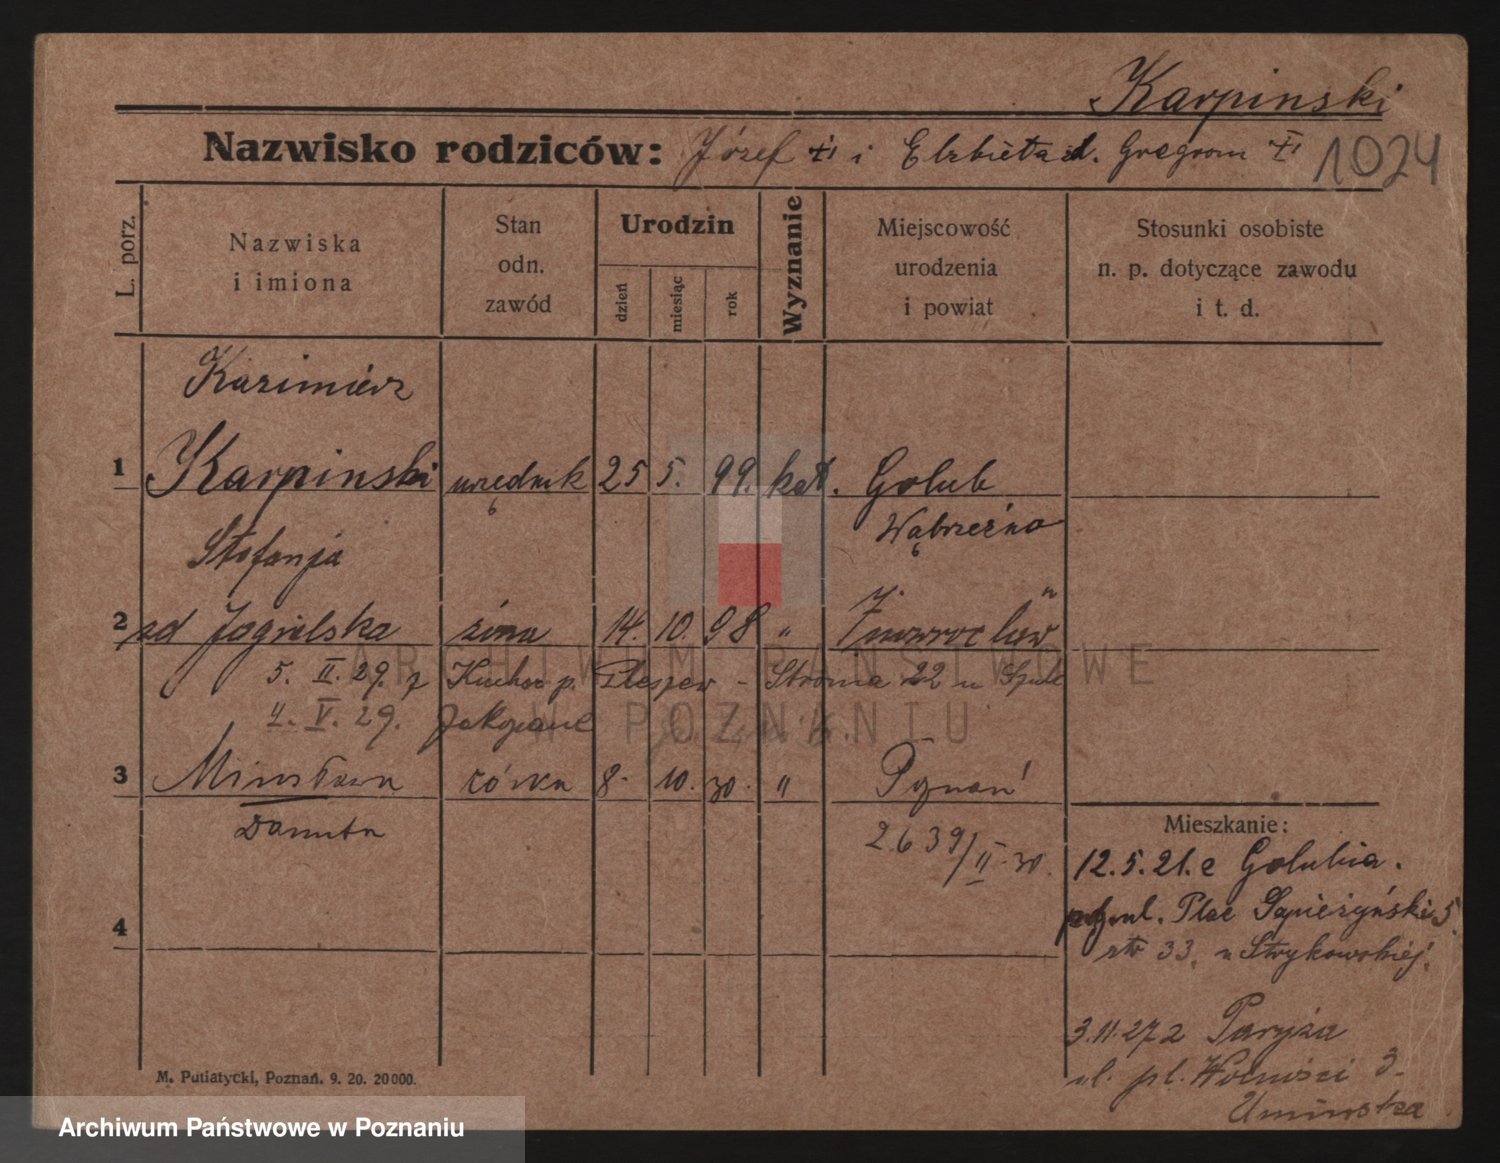 Karpinski
Nazwisko rodziców: Józef i Elżbieta d. Gregrom
1024
L. porz.
Nazwiska i imiona
Stan odn. zawód
Urodzin
dzień
miesiąc
rok
Wyznanie
Miejscowość urodzenia i powiat
Stosunki osobiste n. p. dotyczące zawodu i t. d.
Kazimierz
1 Karpinski urzędnik 25 5. 99. kat. Golub
Wąbrzeźno
Stefanja
2 zd Jagielska żona 14. 10. 98 " Inowrocław
5. II. 29. z Kuchar p. Pleszew - Stroma 22 u
4. V. 29. Zakopane
3 Mirosława córka 8. 10. 30. " Poznań
Danuta
2639/II. 30.
Mieszkanie:
12.5.21. z Golubia.
ul. Plac Sapieżyński 5.
str 33. u Strykowskiej.
4
3.11.27 z Paryża
ul. pl. Wolności 3
Umińska
M. Putiatycki, Poznań. 9. 20. 20000.
ARCHIWUM PAŃSTWOWE
W POZNANIU
Archiwum Państwowe w Poznaniu